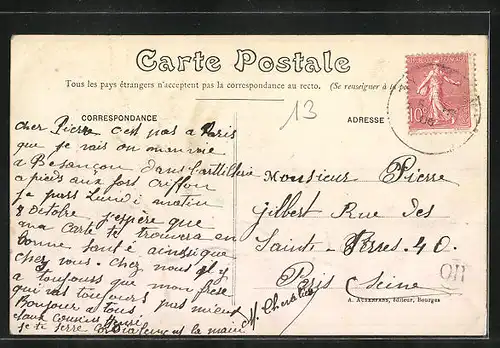 Carte Postale
Tous les pays étrangers n'acceptent pas la correspondance au recto. (Se renseigner à la po
CORRESPONDANCE
ADRESSE
13
10
Cher Pierre c'est pas a Paris
que je vais on m'envoie
a Besançon dans l'artillerie
a pieds aux fort Griffon
je pars Lundi matin
8 Octobre j'espère que
ma Carte te trouvera en
bonne santé ainsi que
chez vous. Chez nous il y
a toujours que mon frère
qui vas toujours pas mieux
Bonjour a tous
ton cousin
je te serre la main
Monsieur Pierre
Gilbert Rue des
Saints-Pères. 40.
Paris (Seine)
OR
A. AUXENFANS, Éditeur, Bourges